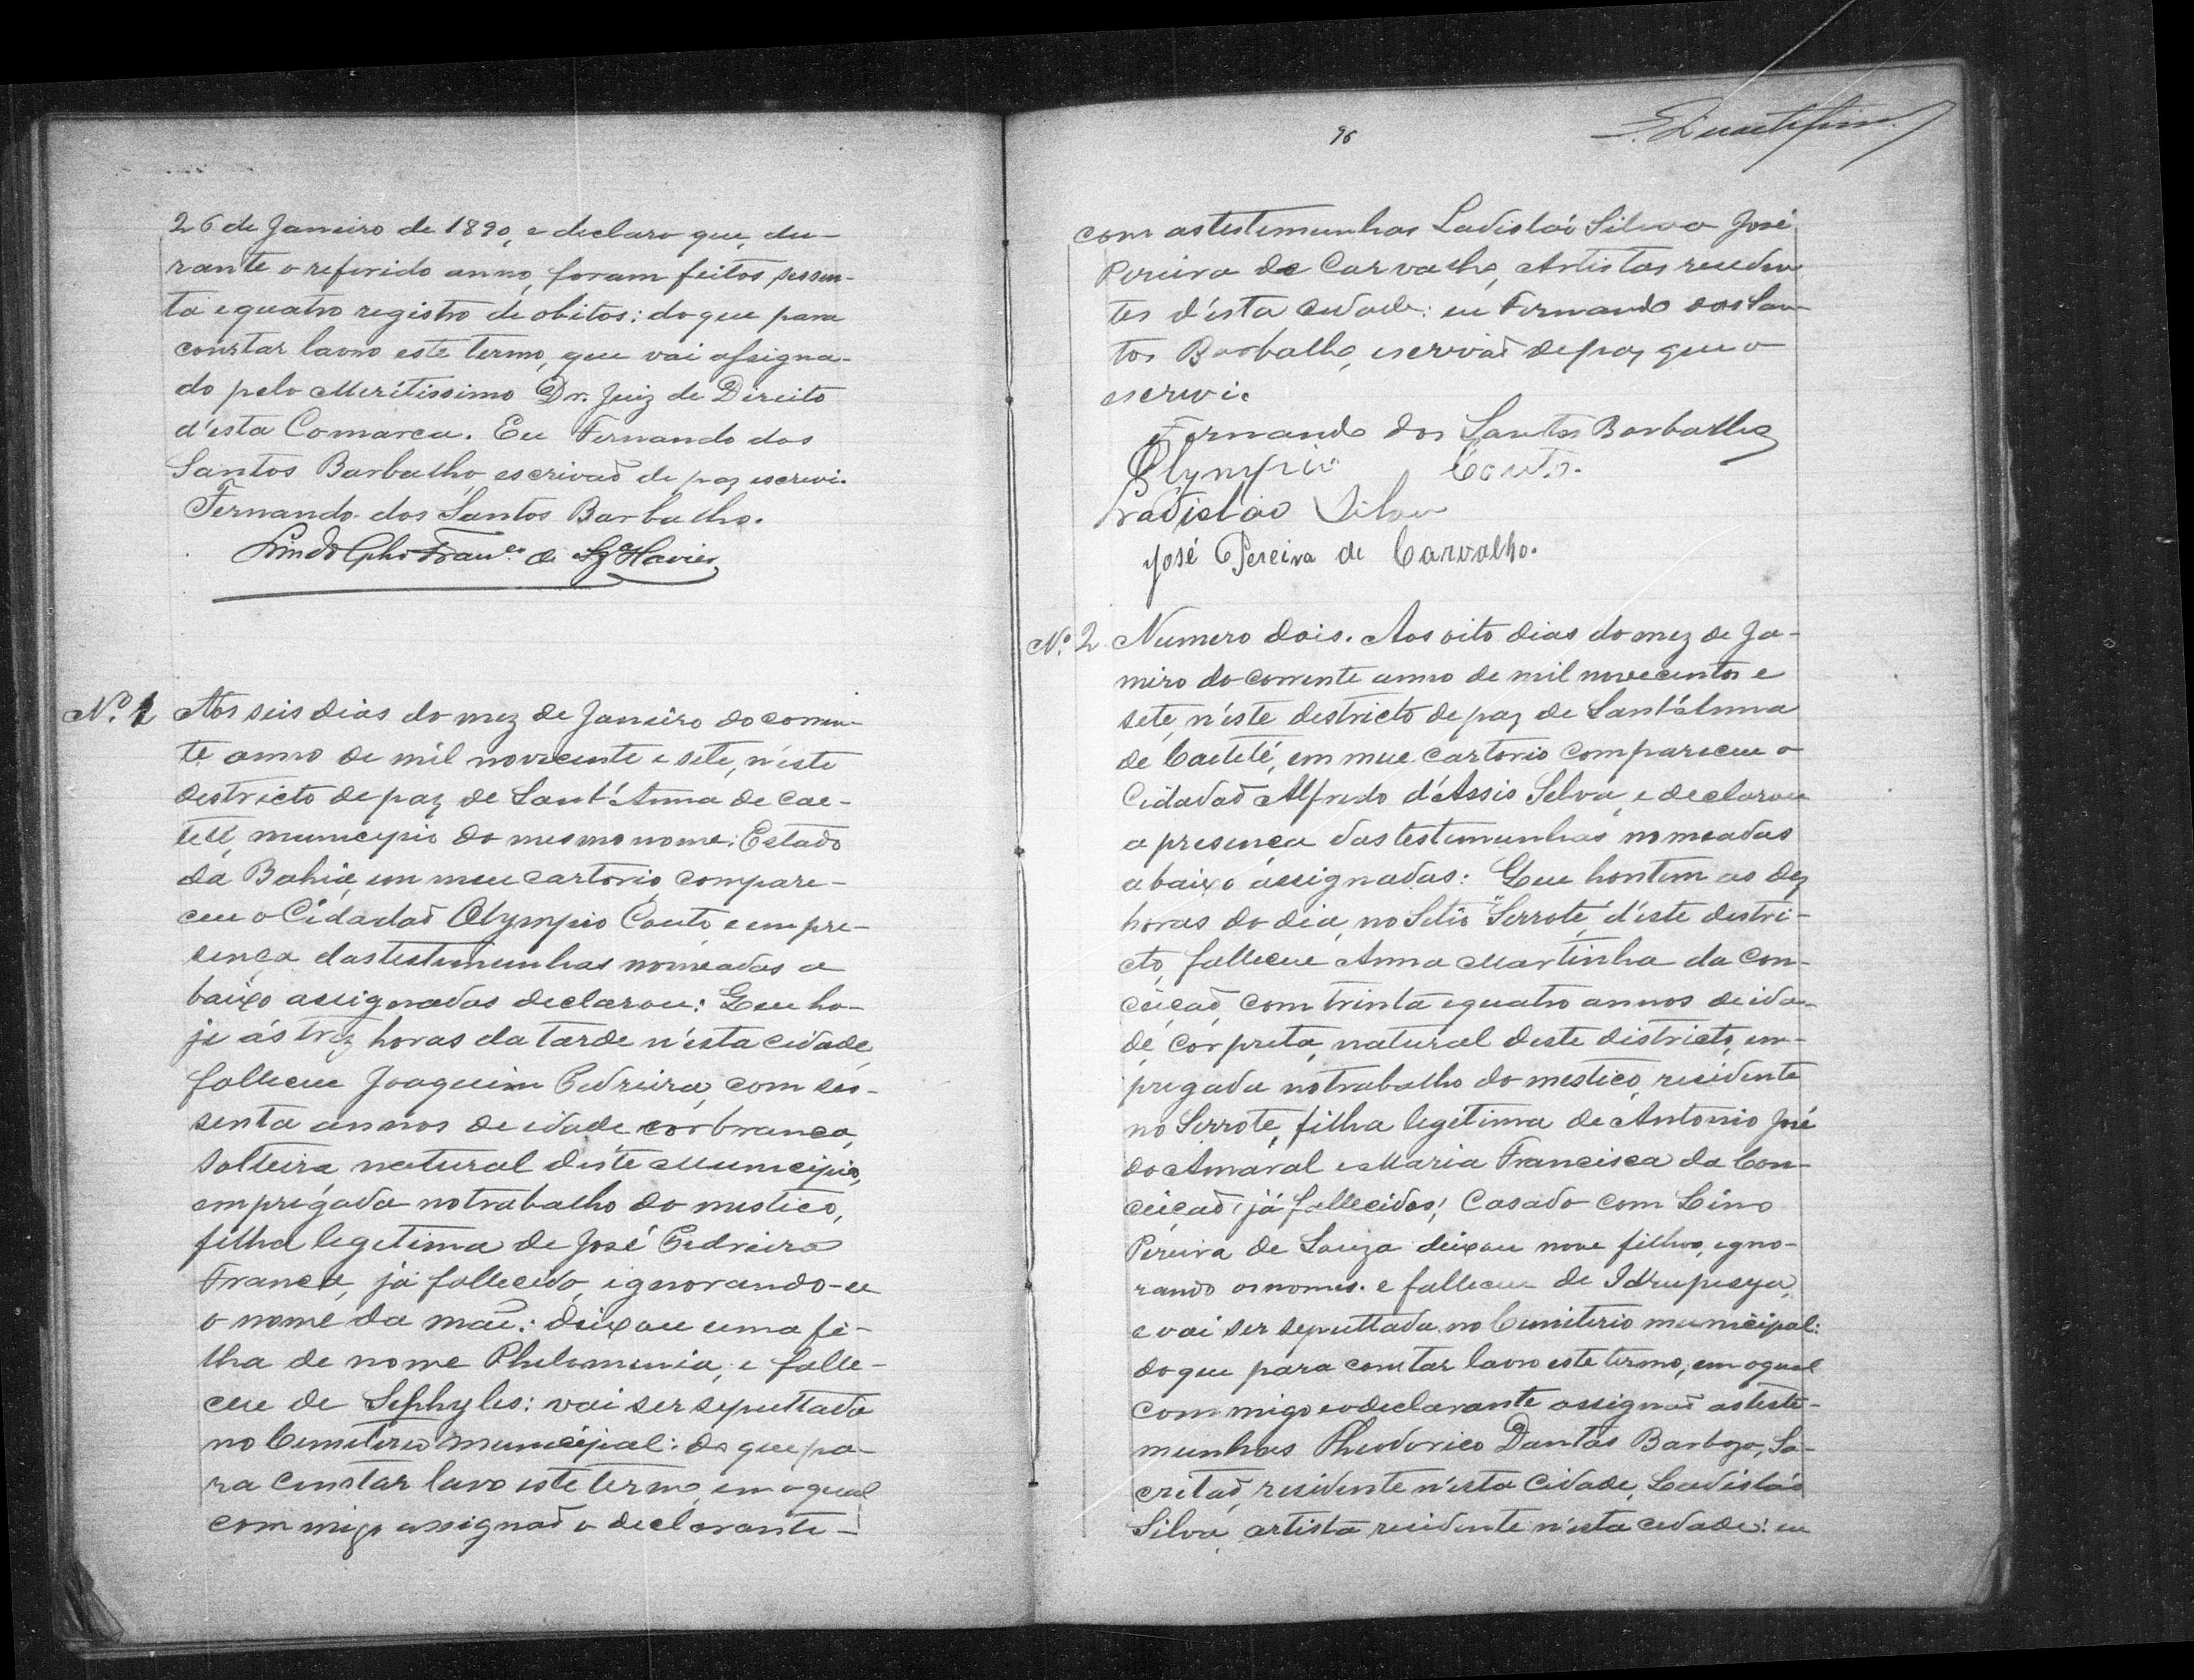 26 de Janeiro de 1890, e declaro que, du-
rante o referido anno, foram feitos sessen-
ta e quatro registro de obitos: do que para
constar lavro este termo, que vai assigna-
do pelo Meritissimo Dr. Juiz de Direito
d'esta Comarca. Eu Fernando dos
Santos Barbalho, escrivaõ de paz escrevi.
Fernando dos Santos Barbalho.
Lindolpho Franco. de
Nº. 1 Aos seis dias do mez de Janeiro do corren-
te anno de mil novecente e sete, n'este
destricto de paz de Sant'Anna de Cae-
teté, municipio do mesmo nome: Estado
da Bahia, em meu cartorio compare-
ceu o Cidadaõ Olympio Couto, e em pre-
sença das testimunhas nomeadas a
baixo assignadas declarou: Que ho-
je ás trez horas da tarde n'esta cidade
falleceu Joaquim Pedreira, com ses-
senta annos de idade cor branca,
solteira, natural d'este Municipio,
empregada no trabalho do mestico,
filha legetima de José Pedreira
Franca, já fallecido, ignorando-se
o nome da maẽ: deixou uma fi-
lha de nome Philomenia, e falle-
ceu de Sephyles: vai ser sepultada
no Cemiterio municipal: do que pa-
ra constar lavro este termo, em o qual
com migo assignaõ o declarante-
96
com as testemunhas Ladisláo Silva o José
Pereira de Carvalho, Artistas residen
tes d'esta cidade: eu Fernando dos San-
tos Barbalho, escrivaõ de paz que o
escrevi.
Fernando dos Santos Barbalho
Olympio Couto.
Ladisláo Silva
José Pereira de Carvalho.
Nº. 2 Numero dois. Aos oito dias do mez de Ja-
neiro do corrente anno de mil novecentos e
sete, n'este destricto de paz de Sant'Anna
de Caeteté, em meu cartorio compareceu o
Cidadaõ Alfredo d'Assis Selva, e declarou
a presença das testemunhas nomeadas
abaixo assignadas: Que hontem as dez
horas do dia, no Sitio "Serrote, d'este destri-
cto, falleceu Anna Martinha da Con-
ceiçaõ, com trinta e quatro annos de ida-
de, cor preta, natural deste districto, em-
pregada no trabalho do mestico, residente
no Serrote, filha legitima de Antonio José
do Amaral e Maria Francisca da Con-
ceiçaõ, já fallecidos; Casado com Lino
Pereira de Souza deixou nove filhos, egno-
rando os nomes. e falleceu de Idrupesya,
e vai ser sepultada no Cemiterio municipal:
do que para constar lavro este termo, em o qual
com migo e o declarante assignaõ as teste-
munhas Theodorico Dantas Barboza, Sa-
critaõ, residente n'esta Cidade, Ladisláo
Silva, artista residente n'esta cedade: eu